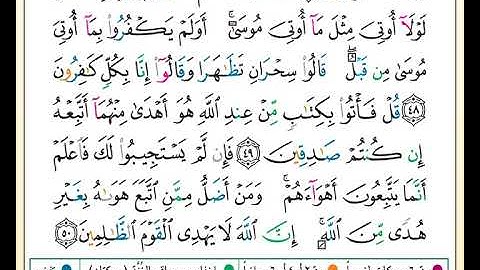 لَوْلَآ أُوتِيَ مِثْلَ مَآ أُوتِيَ مُوسَىٰٓۚ أَوَلَمْ يَكْفُرُوا۟ بِمَآ أُوتِيَ
مُوسَىٰ مِن قَبْلُۖ قَالُوا۟ سِحْرَانِ تَظَـٰهَرَا وَقَالُوٓا۟ إِنَّا بِكُلٍّ كَـٰفِرُونَ
٤٨ قُلْ فَأْتُوا۟ بِكِتَـٰبٍ مِّنْ عِندِ ٱللَّهِ هُوَ أَهْدَىٰ مِنْهُمَآ أَتَّبِعْهُ
إِن كُنتُمْ صَـٰدِقِينَ ٤٩ فَإِن لَّمْ يَسْتَجِيبُوا۟ لَكَ فَٱعْلَمْ
أَنَّمَا يَتَّبِعُونَ أَهْوَآءَهُمْۚ وَمَنْ أَضَلُّ مِمَّنِ ٱتَّبَعَ هَوَىٰهُ بِغَيْرِ
هُدًى مِّنَ ٱللَّهِۚ إِنَّ ٱللَّهَ لَا يَهْدِى ٱلْقَوْمَ ٱلظَّـٰلِمِينَ ٥٠